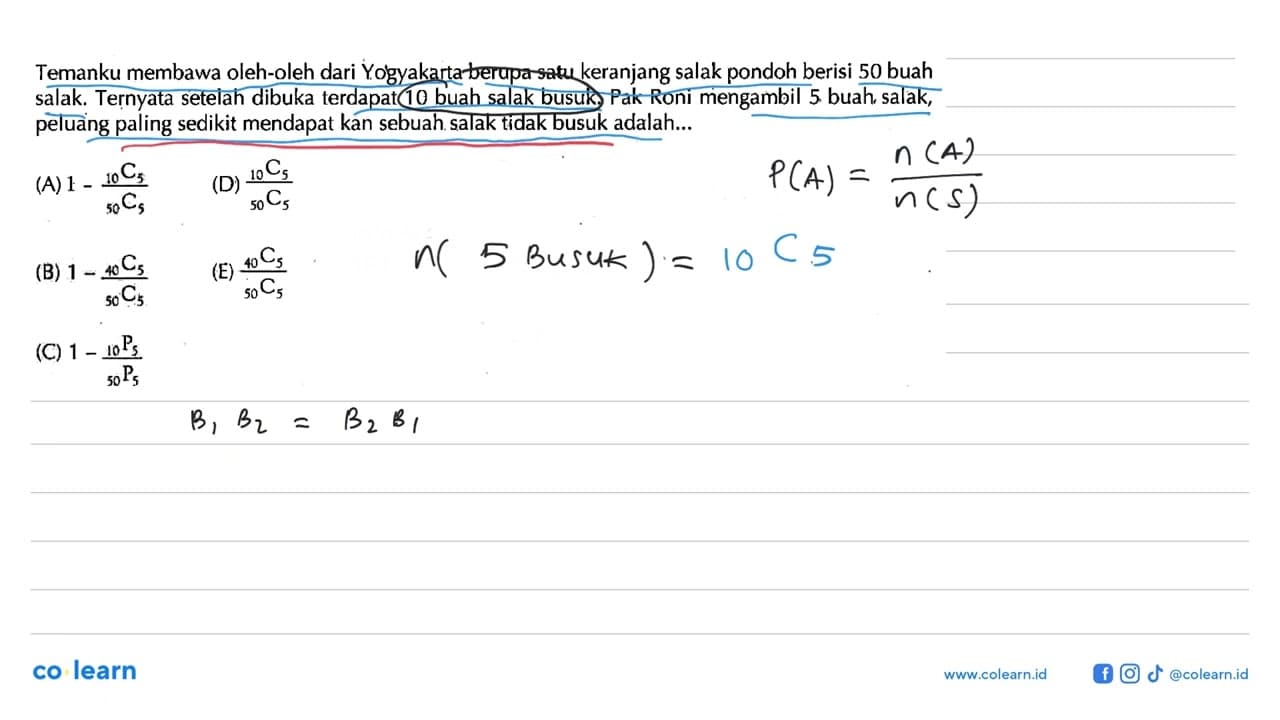 Temanku membawa oleh-oleh dari Yogyakarta berupa satu keranjang salak pondoh berisi 50 buah
salak. Ternyata setelah dibuka terdapat 10 buah salak busuk. Pak Roni mengambil 5 buah salak,
peluang paling sedikit mendapat kan sebuah salak tidak busuk adalah...
(A) 1 - ₁₀C₅ / ₅₀C₅ (D) ₁₀C₅ / ₅₀C₅
P(A) = n(A) / n(S)
(B) 1 - ₄₀C₅ / ₅₀C₅ (E) ₄₀C₅ / ₅₀C₅
n( 5 Busuk ) = 10 C 5
(C) 1 - ₁₀P₅ / ₅₀P₅
B₁ B₂ = B₂ B₁
co learn
www.colearn.id @colearn.id